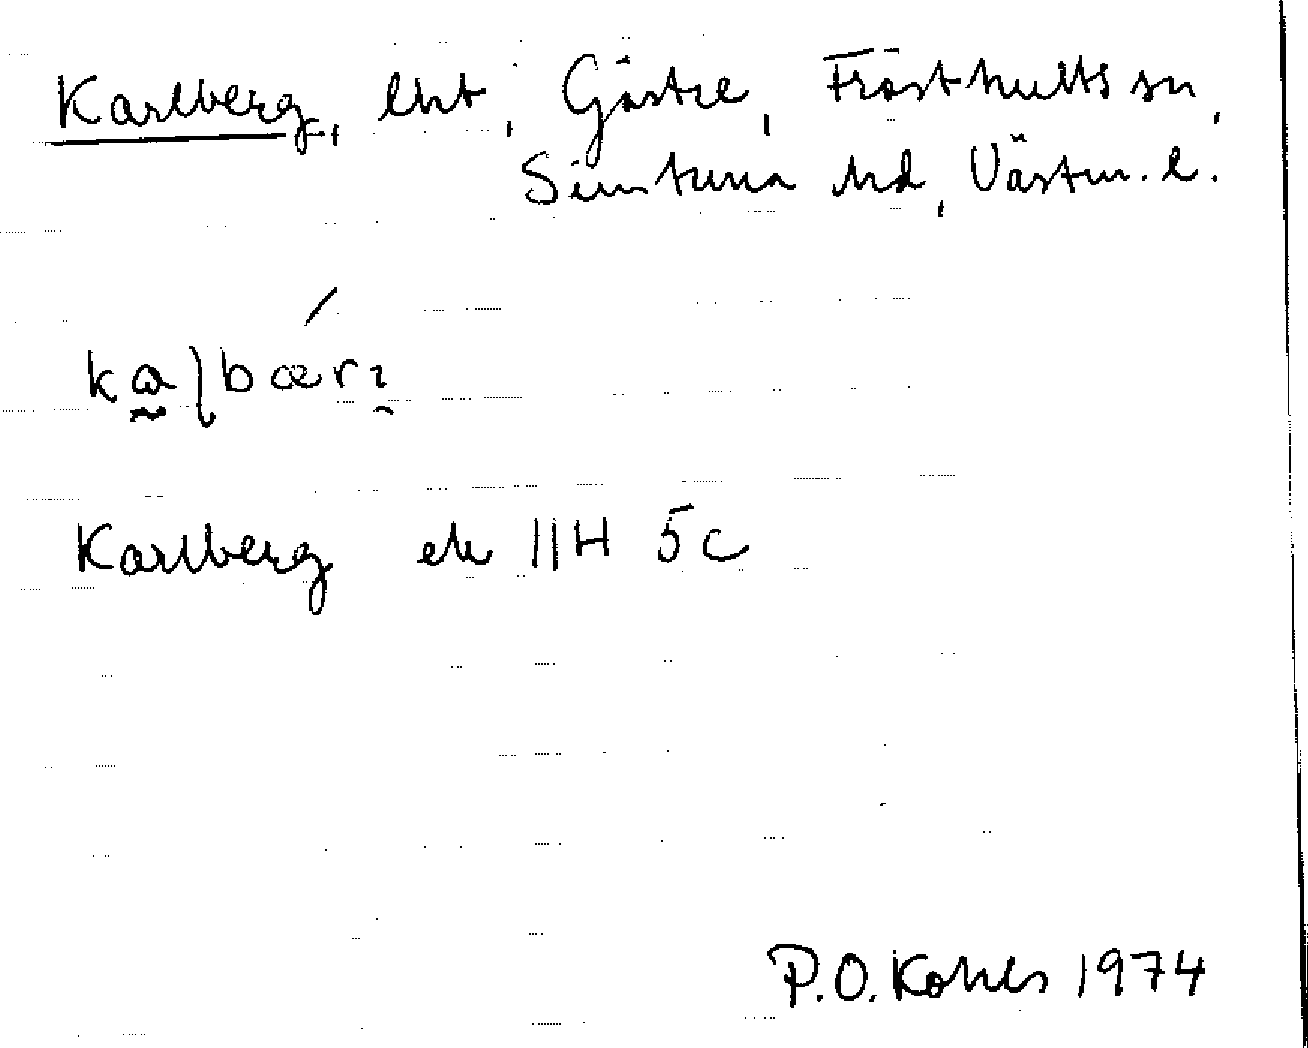 Karlberg, lht, Gästre, Frösthults sn,
Simtuna hd, Västm. l.
Karlberg ek 11H 5c
P.O. Kohls 1974